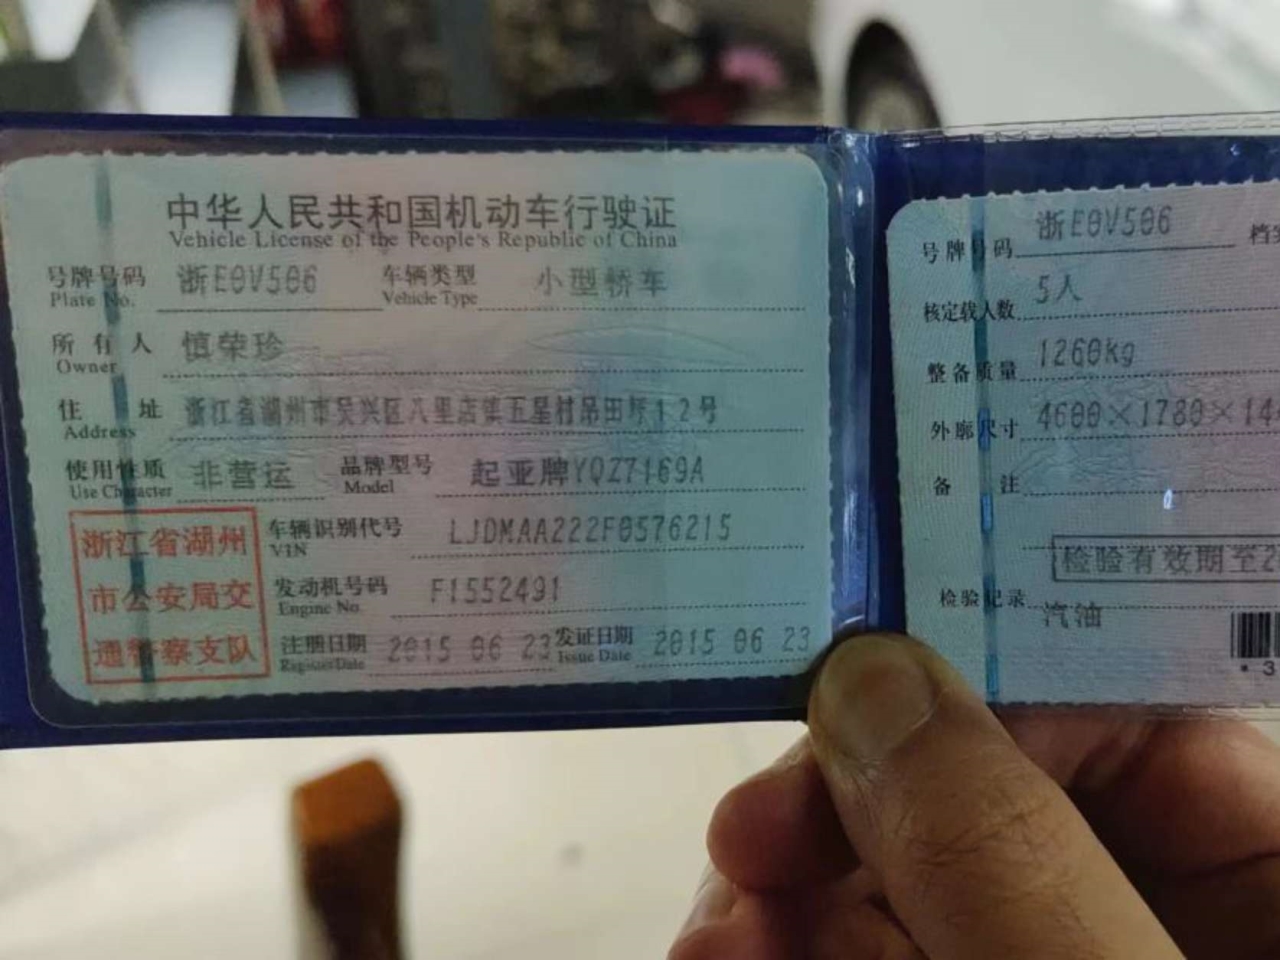 中华人民共和国机动车行驶证
Vehicle License of the People's Republic of China
号牌号码 浙E0V506 车辆类型 小型轿车
Plate No. Vehicle Type
所有人 慎荣珍
Owner
住址 浙江省湖州市吴兴区八里店镇五星村吊田圩12号
Address
使用性质 非营运 品牌型号 起亚牌YQZ7169A
Use Character Model
浙江省湖州
市公安局交
通警察支队
车辆识别代号 LJDMAA222F0576215
VIN
发动机号码 F1552491
Engine No.
注册日期 2015 06 23 发证日期 2015 06 23
Register Date Issue Date
号牌号码 浙E0V506 档
核定载人数 5人
整备质量 1260kg
外廓尺寸 4600×1780×14
备注
检验有效期至2
检验记录
汽油
*3